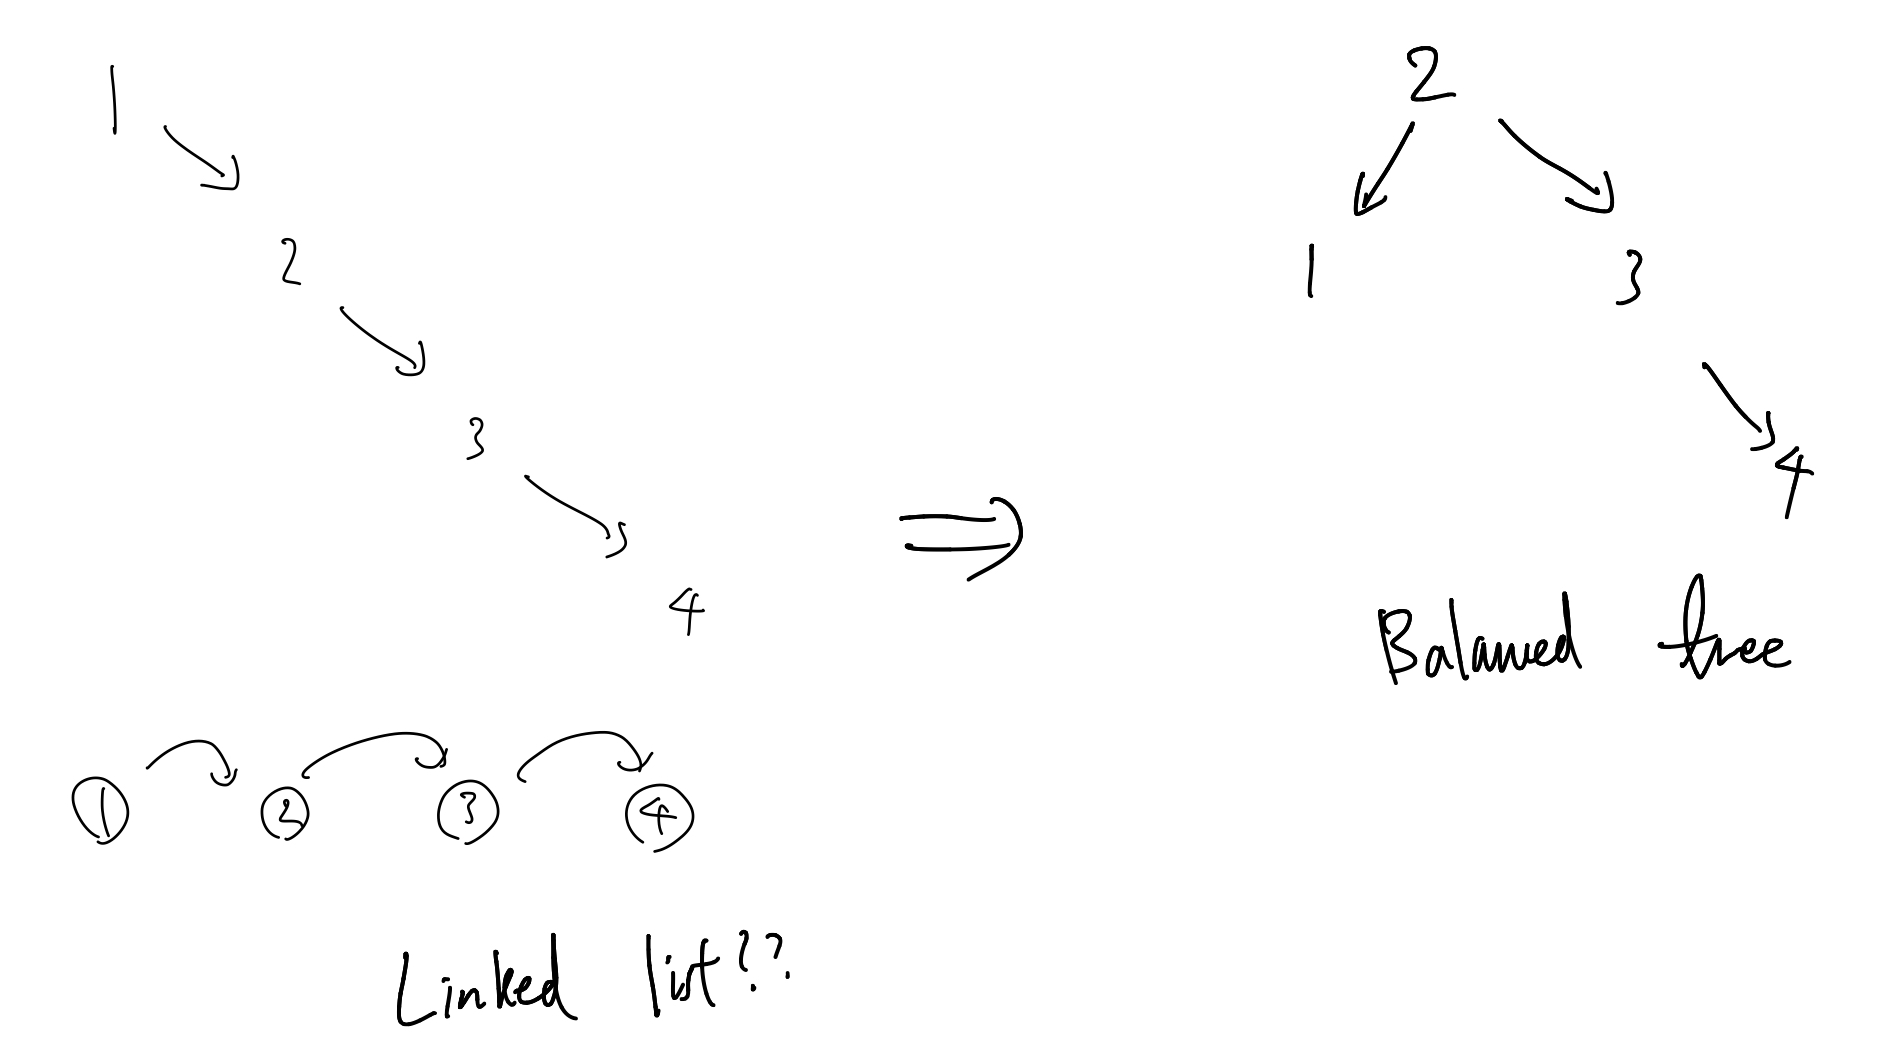 1
2
3
4
1 2 3 4
Linked list??
2
1 3
4
Balanced tree